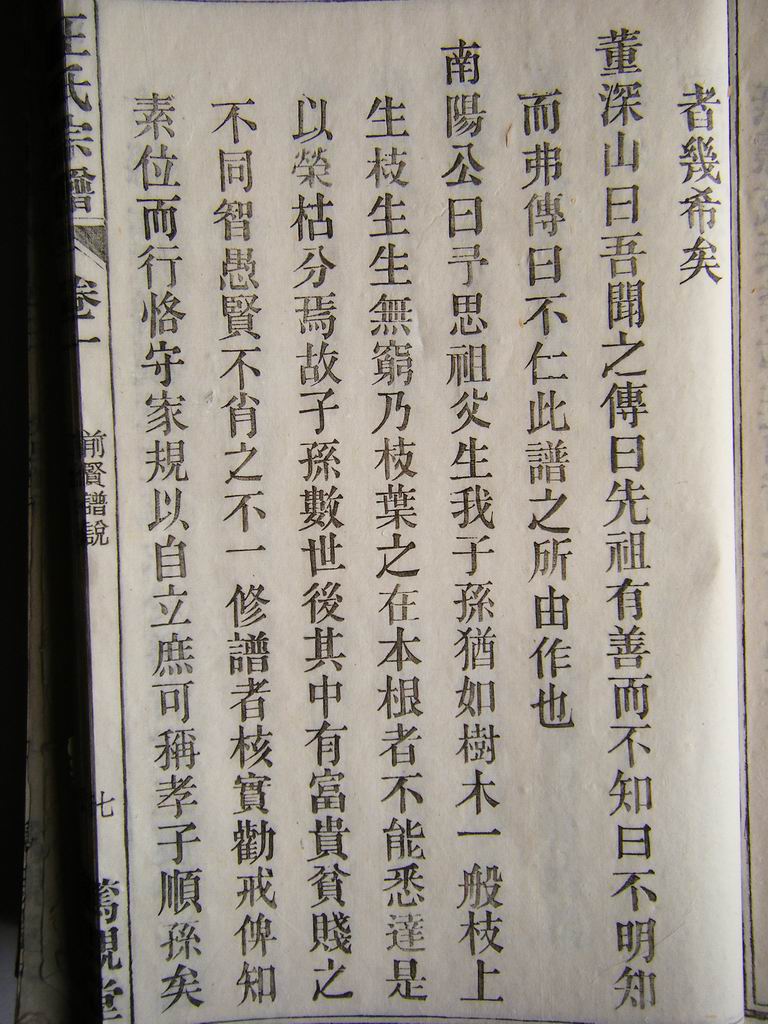 者幾希矣
董深山曰吾聞之傳曰先祖有善而不知曰不明知
而弗傳曰不仁此譜之所由作也
南陽公曰予思祖父生我子孫猶如樹木一般枝上
生枝生生無窮乃枝葉之在本根者不能悉達是
以榮枯分焉故子孫數世後其中有富貴貧賤之
不同智愚賢不肖之不一修譜者核實勸戒俾知
素位而行恪守家規以自立庶可稱孝子順孫矣
王氏宗譜
卷一
前賢譜說
七